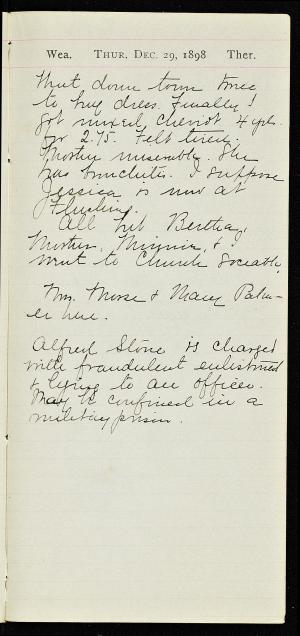 Wea. THUR. DEC. 29, 1898 Ther.
Went down town twice
to buy dress. Finally I
got mixed cheviot 4 yds.
for 2.75. Felt tired.
Mother miserable. She
has bronchitis. I suppose
Jessica is now at
Flushing.
All but Bertha,
Mother, Minnie, &
went to Church Sociable.
Mrs. Morse & Mary Palm-
er here.
Alfred Stone is charged
with fraudulent enlistment
& lying to an officer.
May be confined in a
military prison.